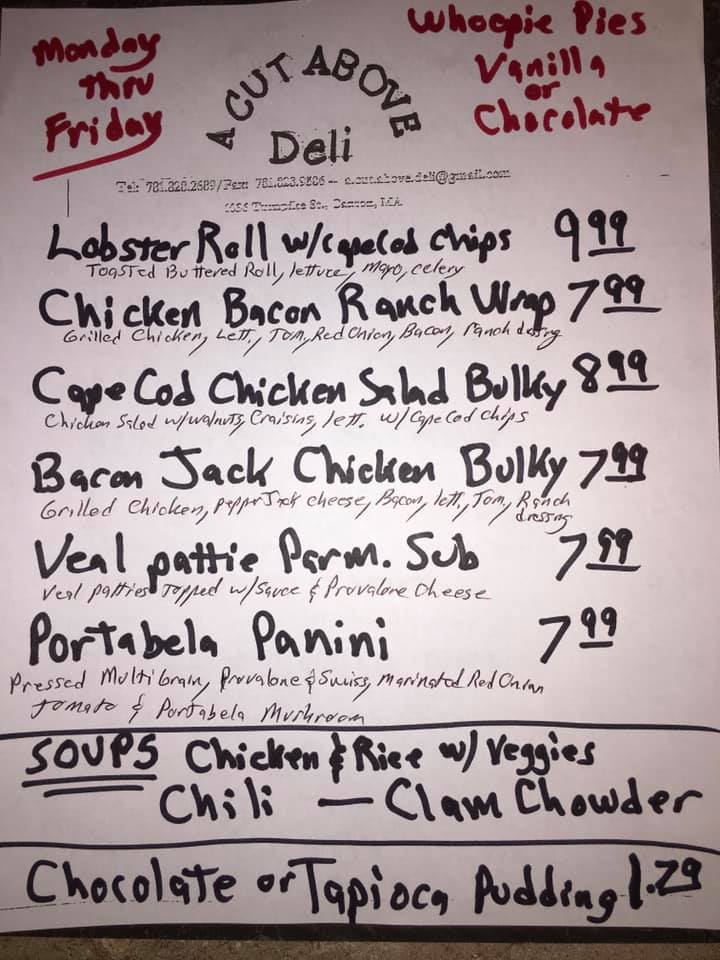 Monday
thru
Friday
Whoopie Pies
Vanilla
or
Chocolate
A CUT ABOVE
Deli
Tel: 781.828.2689/Fax: 781.828.9806 – a.cut.above.deli@gmail.com
Turnpike St., Canton, MA
Lobster Roll w/cape cod chips 9.99
Toasted Buttered Roll, lettuce, mayo, celery
Chicken Bacon Ranch Wrap 7.99
Grilled Chicken, Lett., Tom, Red Onion, Bacon, ranch dssng
Cape Cod Chicken Salad Bulky 8.99
Chicken Salad w/walnuts, Craisins, lett. w/Cape Cod chips
Bacon Jack Chicken Bulky 7.99
Grilled Chicken, pepper Jack cheese, Bacon, lett, Tom, Ranch
dressng
Veal pattie Parm. Sub 7.99
Veal patties Topped w/Sauce & Provalone Cheese
Portabela Panini 7.99
Pressed Multi Grain, Provalone & Swiss, Marinated Red Onion
Tomato & Portabela Mushroom
SOUPS Chicken & Rice w/ Veggies
Chili — Clam Chowder
Chocolate or Tapioca Pudding 1.29